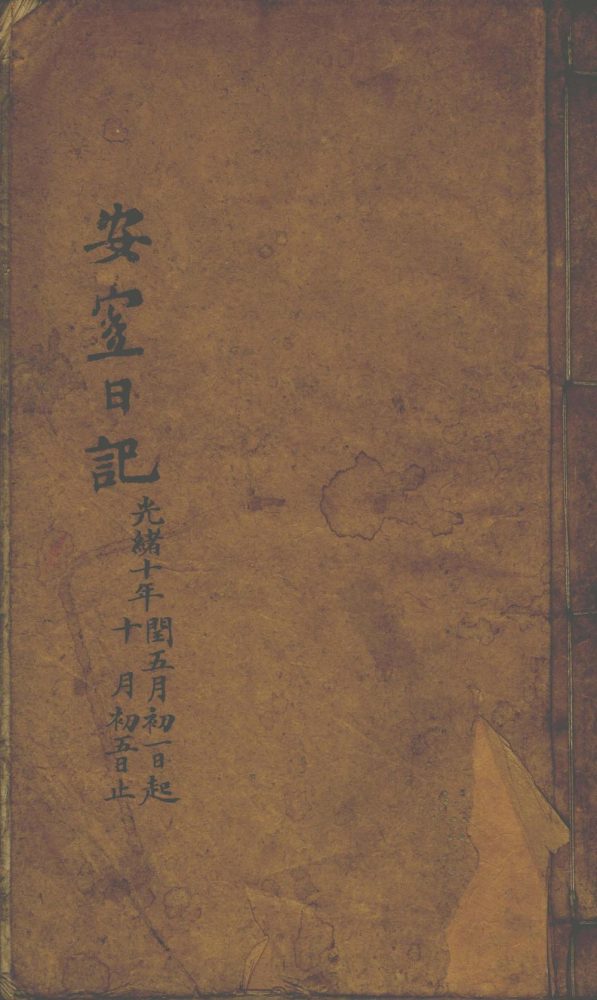 安日記
光緒十年閏五月初一日起
十月初五日止